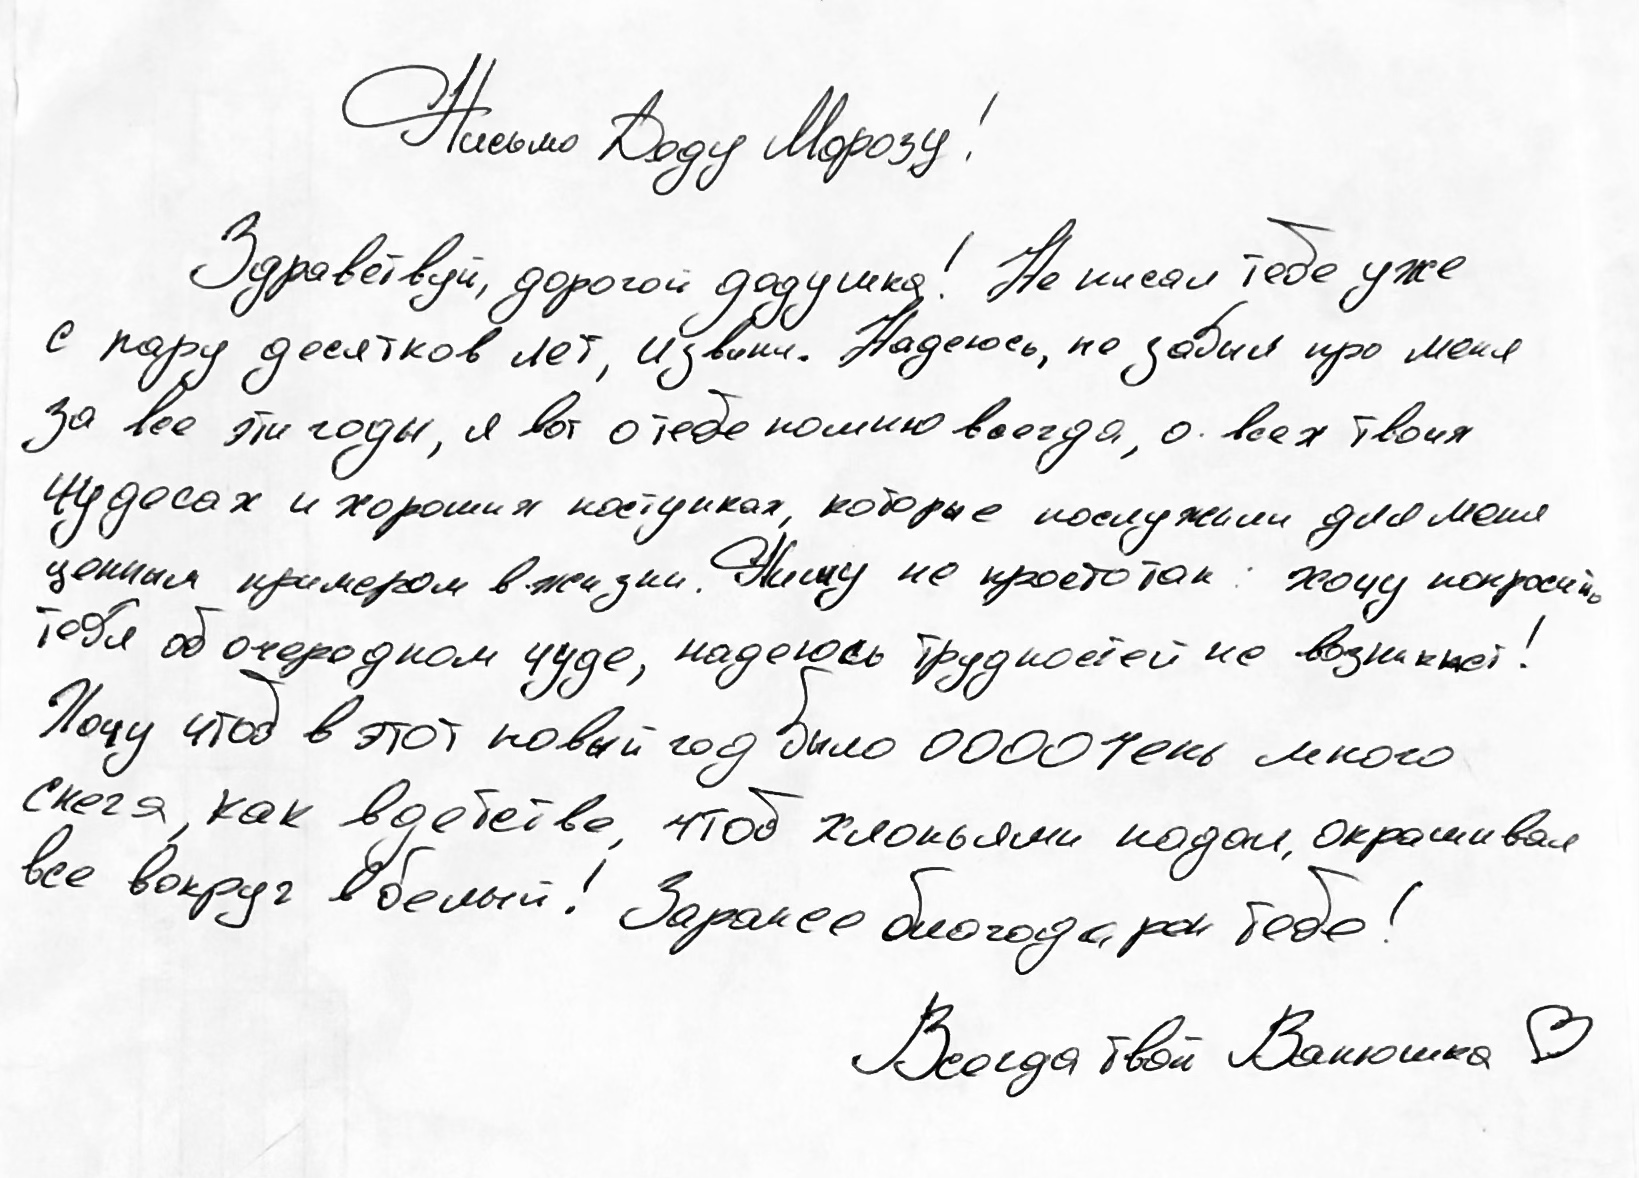 Письмо Деду Морозу!
Здравствуй, дорогой дедушка! Не писал тебе уже
с пару десятков лет, извини. Надеюсь, не забыл про меня
за все эти годы, я вот о тебе помню всегда, о всех твоих
чудесах и хороших поступках, которые послужили для меня
ценным примером в жизни. Пишу не просто так: хочу попросить
тебя об очередном чуде, надеюсь трудностей не возникнет!
Хочу чтоб в этот новый год было ООООчень много
снега, как в детстве, чтоб хлопьями падал, окрашивая
все вокруг в белый! Заранее благодарен тебе!
Всегда твой Ванюшка ♡